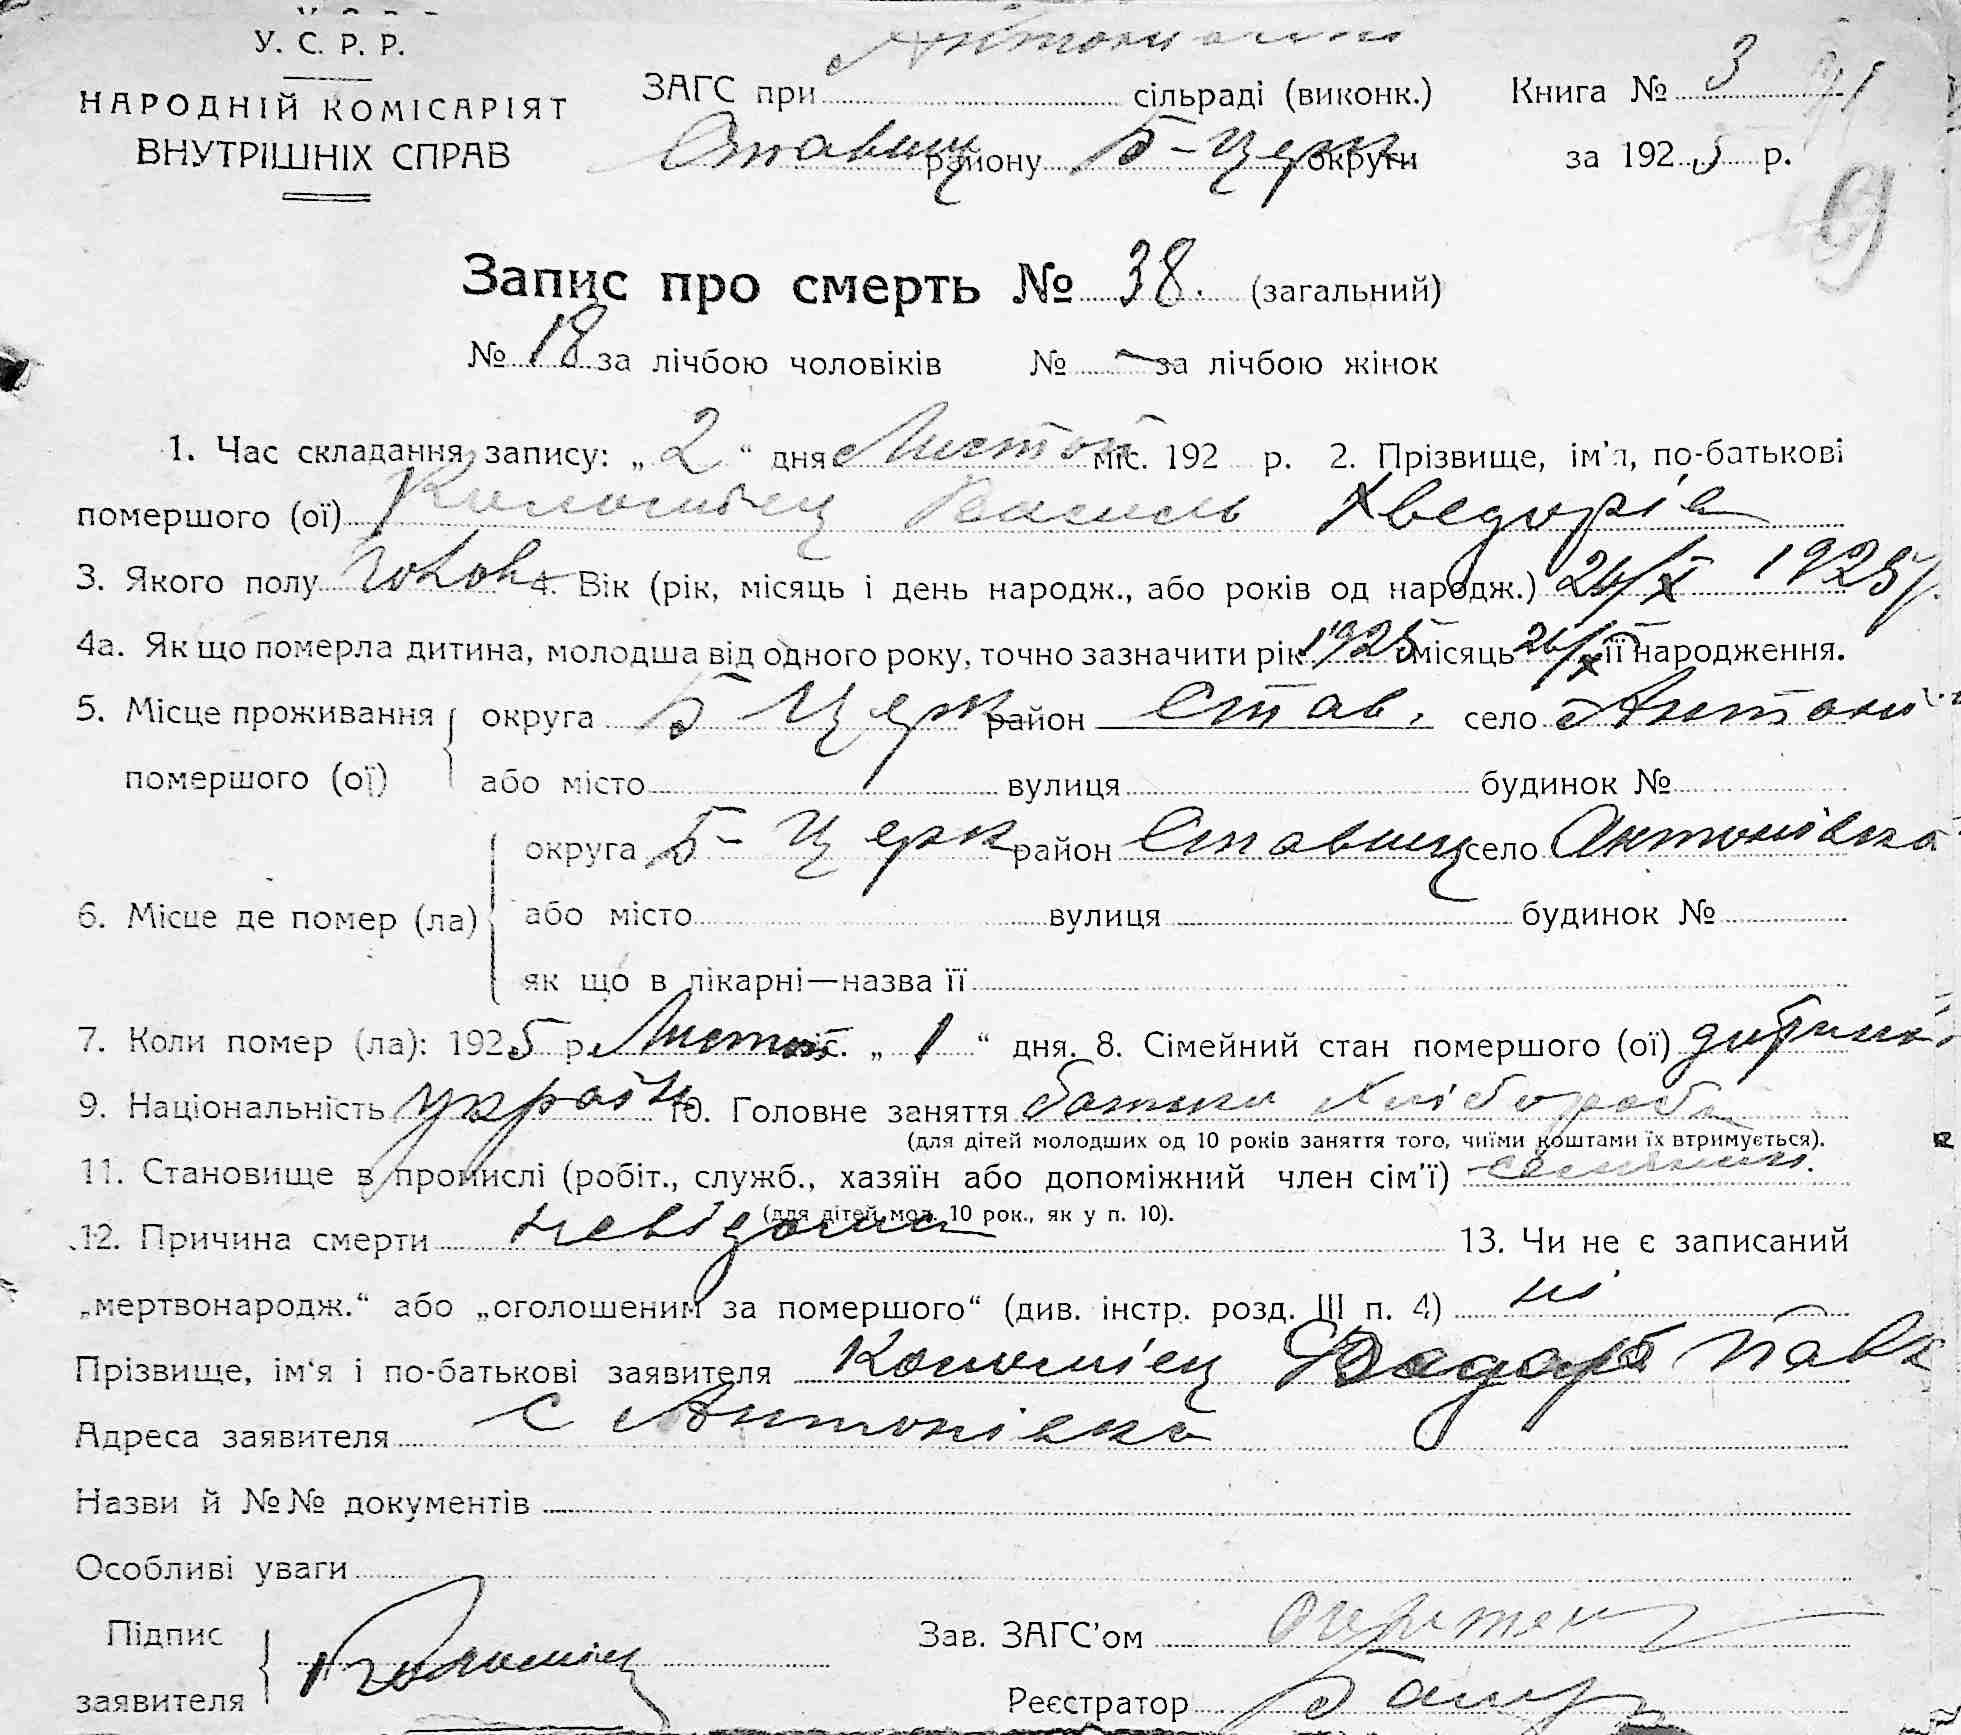 У. С. Р. Р.
НАРОДНІЙ КОМІСАРІЯТ
ВНУТРІШНІХ СПРАВ
ЗАГС при сільраді (виконк.) Книга № 3
Ставищ району Б-Церк округи за 1925 р.
Запис про смерть № 38. (загальний)
№ 18 за лічбою чоловіків № — за лічбою жінок
1. Час складання запису: „2“ дня Листоп міс. 192 р. 2. Прізвище, ім'я, по-батькові
помершого (ої) Коломіец Василь Хведорів
3. Якого полу чоловіч 4. Вік (рік, місяць і день народж., або років од народж.) 26/X 1925 р.
4а. Як що померла дитина, молодша від одного року, точно зазначити рік 1925 місяць 26/X її народження.
5. Місце проживання помершого (ої) округа Б Церк район Став. село Антонів
або місто вулиця будинок №
6. Місце де помер (ла) округа Б-Церк район Ставищ село Антонівка
або місто вулиця будинок №
як що в лікарні—назва її
7. Коли помер (ла): 1925 р. Листоп міс. „1“ дня. 8. Сімейний стан помершого (ої) дитина
9. Національність україн 10. Головне заняття батьки хлібороби
(для дітей молодших од 10 років заняття того, чиїми коштами їх втримується).
11. Становище в промислі (робіт., служб., хазяїн або допоміжний член сім'ї)
(для дітей мол. 10 рок., як у п. 10).
12. Причина смерти невідома 13. Чи не є записаний
„мертвонародж.“ або „оголошеним за помершого“ (див. інстр. розд. III п. 4) ні
Прізвище, ім'я і по-батькові заявителя Коломіец Павл
Адреса заявителя с Антонівка
Назви й №№ документів
Особливі уваги
Підпис заявителя Коломіец Зав. ЗАГС'ом
Реєстратор